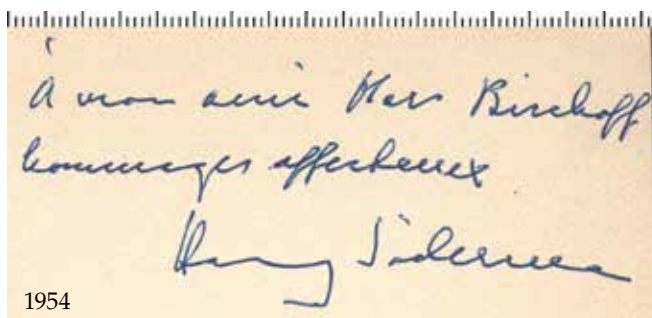 À mon ami Marc Bischoff
hommages affectueux
Harry Söderman
1954